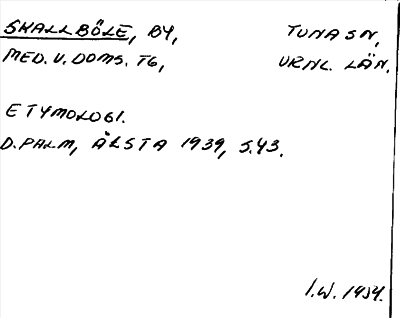 SKALLBÖLE, BY, TUNA SN,
MED. V. DOMS. TG, VRNL. LÄN.
ETYMOLOGI.
D. PALM, ÄLSTA 1939, S.43.
I.W. 1954.